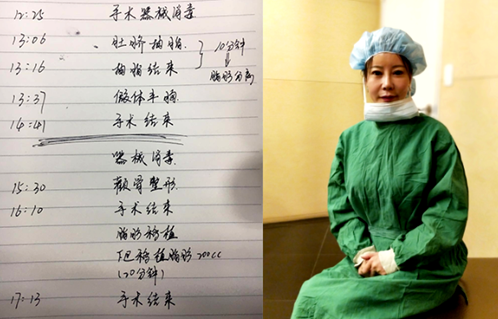 12:25 手术器械消毒
13:06 肚脐抽脂
10分钟
13:16 抽脂结束
脂肪分离
13:37 假体丰胸
14:41 手术结束
器械消毒
15:30 颧骨整形
16:10 手术结束
脂肪移植
下巴移植脂肪 200cc
(20分钟)
17:13 手术结束